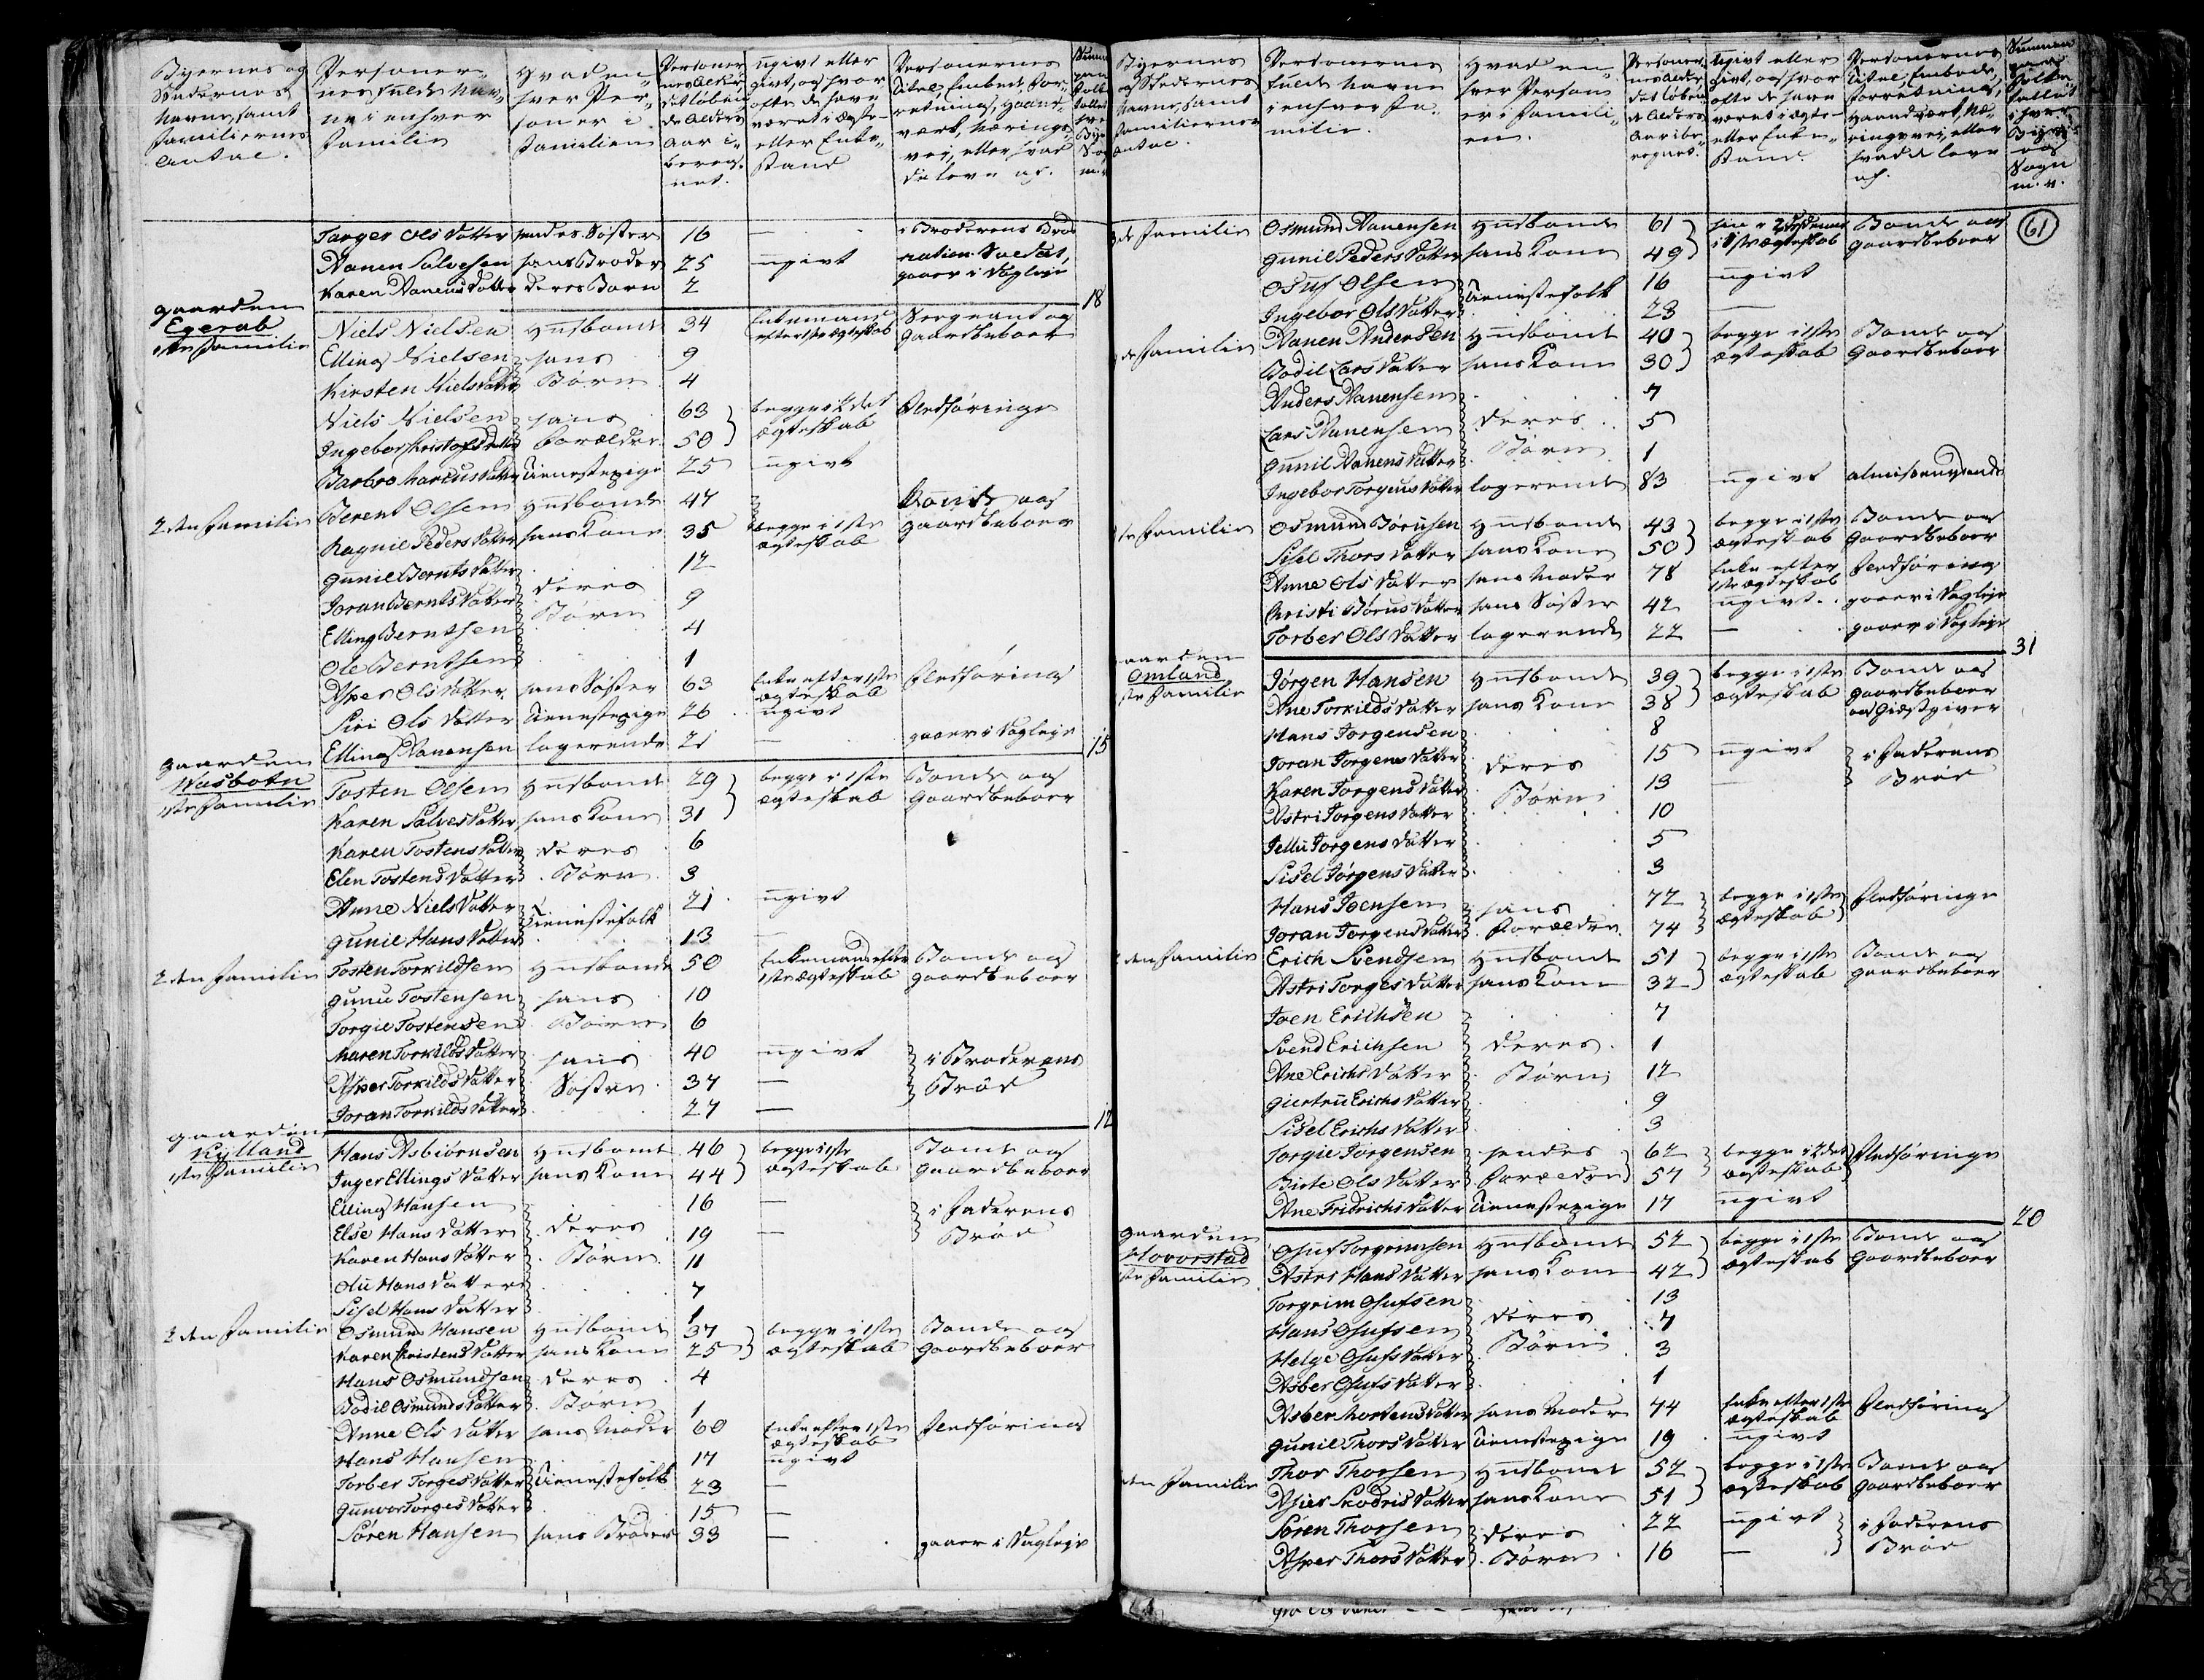 Byernes og Stedernes Navne, samt Familiernes Antal.
Personernes fulde Navne i enhver Familie
Hvad enhver Person er i Familien
Personernes Alder det løbende Alders Aar iberegnet.
ugivt eller givt, og hvor ofte de have været i Ægte- eller Enkestand
Personernes Titel, Embed, Forretning, Haandværk, Nærings vei, eller hvad de leve af.
Torger Ols Datter hendes Søster 16 — i Broderens Brød
Aanen Salvesen hans Broder 25 ugivt national Soldat, gaaer i Dagleje
Karen Aanens Datter deres Barn 2
18
Gaarden Egerab
1ste Familie Niels Nielsen Husbonde 34 Enkemand efter 1ste ægteskab Sergeant og Gaardbeboer
Elling Nielsen hans 9
Kirsten Niels Datter Børn 4
Niels Nielsen hans 63 begge i 2det ægteskab Fledføringe
Ingebor Christofs Datter Forældre 50
Barbro Marcus Datter Tienestepige 25 ugivt
2den Familie Berent Olsen Husbonde 47 begge i 1ste ægteskab Bonde og Gaardbeboer
Ragnil Peders Datter hans Kone 35
Gunil Bernts Datter 12
Joran Bernts Datter deres 9
Elling Berntsen Børn 4
Ole Berntsen 1
Asper Ols Datter hans Søster 63 Enke efter 1ste ægteskab Fledføring
Siri Ols Datter Tienestepige 26 ugivt
Elling Aanensen logerende 21 — gaaer i Dagleje
15
Gaarden Wasbotn
1ste Familie Tosten Olsen Husbonde 29 begge i 1ste ægteskab Bonde og Gaardbeboer
Karen Salves Datter hans Kone 31
Karen Tostens Datter deres 6
Elen Tostens Datter Børn 3
Anne Niels Datter Tienestefolk 21 ugivt
Gunil Hans Datter 13 —
2den Familie Tosten Torkildsen Husbonde 50 Enkemand efter 1ste ægteskab Bonde og Gaardbeboer
Gunu Tostensen hans 10
Torgie Tostensen Børn 6
Maren Torkilds Datter hans 40 ugivt i Broderens
Asper Torkilds Datter Søstre 37 — Brød
Joran Torkilds Datter 27 —
12
Gaarden Kylland
1ste Familie Hans Asbiørnsen Husbonde 46 begge i 1ste ægteskab Bonde og Gaardbeboer
Inger Ellings Datter hans Kone 44
Elling Hansen 16 — i Faderens
Else Hans Datter deres 19 — Brød
Karen Hans Datter Børn 11
Olu Hans Datter 7
Sisel Hans Datter 1
2den Familie Osmund Hansen Husbonde 37 begge i 1ste ægteskab Bonde og Gaardbeboer
Karen Christens Datter hans Kone 25
Hans Osmundsen deres 4
Bodil Osmunds Datter Børn 1
Anne Ols Datter hans Moder 60 Enke efter 1ste ægteskab Fledføring
Hans Hansen 17 ugivt
Torber Torges Datter Tienestefolk 23 —
Gunvor Torges Datter 15 —
Søren Hansen hans Broder 33 — gaaer i Dagleje
Byernes og Stedernes Navne, samt Familiernes Antal.
Personernes fulde Navne i enhver Familie.
Hvad enhver Person er i Familien.
Personernes Alder det løbende Alders Aar iberegnet.
Ugivt eller givt, og hvor ofte de have været i Ægte- eller Enkestand.
Personernes Titel, Embede, Forretning, Haandværk, Næringsvei, eller hvad de leve af.
Summen paa Folketallet i hver Bye og Sogn m. v.
61
de Familie Osmund Aanensen Husbonde 61 i 1ste ægteskab Bonde og Gaardbeboer
Gunil Peders Datter hans Kone 49
Osuf Olsen Tienestefolk 16 ugivt
Ingebor Ols Datter 23 —
de Familie Aanen Andersen Husbonde 40 begge i 1ste ægteskab Bonde og Gaardbeboer
Bodil Lars Datter hans Kone 30
Anders Aanensen 7
Lars Aanensen deres 5
Gunil Aanens Datter Børn 1
Ingebor Torgeus Datter logerende 83 ugivt almissenydende
te Familie Osmund Børusen Husbonde 43 begge i 1ste ægteskab Bonde og Gaardbeboer
Sisel Thors Datter hans Kone 50
Anne Ols Datter hans Moder 78 Enke efter 1ste ægteskab Fledføring
Christi Børus Datter hans Søster 42 ugivt gaaer i Dagleje
Torber Ols Datter logerende 22 — gaaer i Dagleje
31
Gaarden Omland
1ste Familie Jørgen Hansen Husbonde 39 begge i 1ste ægteskab Bonde og Gaardbeboer og Giestgiver
Ane Torkilds Datter hans Kone 38
Hans Jorgensen 8
Joran Jorgens Datter deres 15 ugivt i Faderens
Karen Jorgens Datter Børn 13 — Brød
Astri Jorgens Datter 10
Jellu Jorgens Datter 5
Sisel Jørgens Datter 3
Hans Joensen hans 72 begge i 1ste ægteskab Fledføringe
Joran Jorgens Datter Forældre 74
2den Familie Erich Svendsen Husbonde 51 begge i 1ste ægteskab Bonde og Gaardbeboer
Astri Torges Datter hans Kone 32
Joen Erichsen 7
Svend Erichsen deres 1
Ane Erichs Datter Børn 12
Giertru Erichs Datter 9
Sisel Erichs Datter 3
Torgie Jorgensen hendes 62 begge i 2det ægteskab Fledføringe
Birte Ols Datter Forældre 57
Ane Fridrichs Datter Tienestepige 17 ugivt
20
Gaarden Hovorstad
1ste Familie Osuf Torgrimsen Husbonde 52 begge i 1ste ægteskab Bonde og Gaardbeboer
Astri Hans Datter hans Kone 42
Torgrim Osufsen 13
Hans Osufsen deres 7
Helge Osufs Datter Børn 3
Asber Osufs Datter 1
Asber Mortens Datter hans Moder 74 Enke efter 1ste ægteskab Fledføring
Gunil Thors Datter Tienestepige 19 ugivt
den Familie Thor Thorsen Husbonde 52 begge i 1ste ægteskab Bonde og Gaardbeboer
Asier Skodris Datter hans Kone 51
Søren Thorsen deres 22 ugivt i Faderens
Asper Thors Datter Børn 16 — Brød